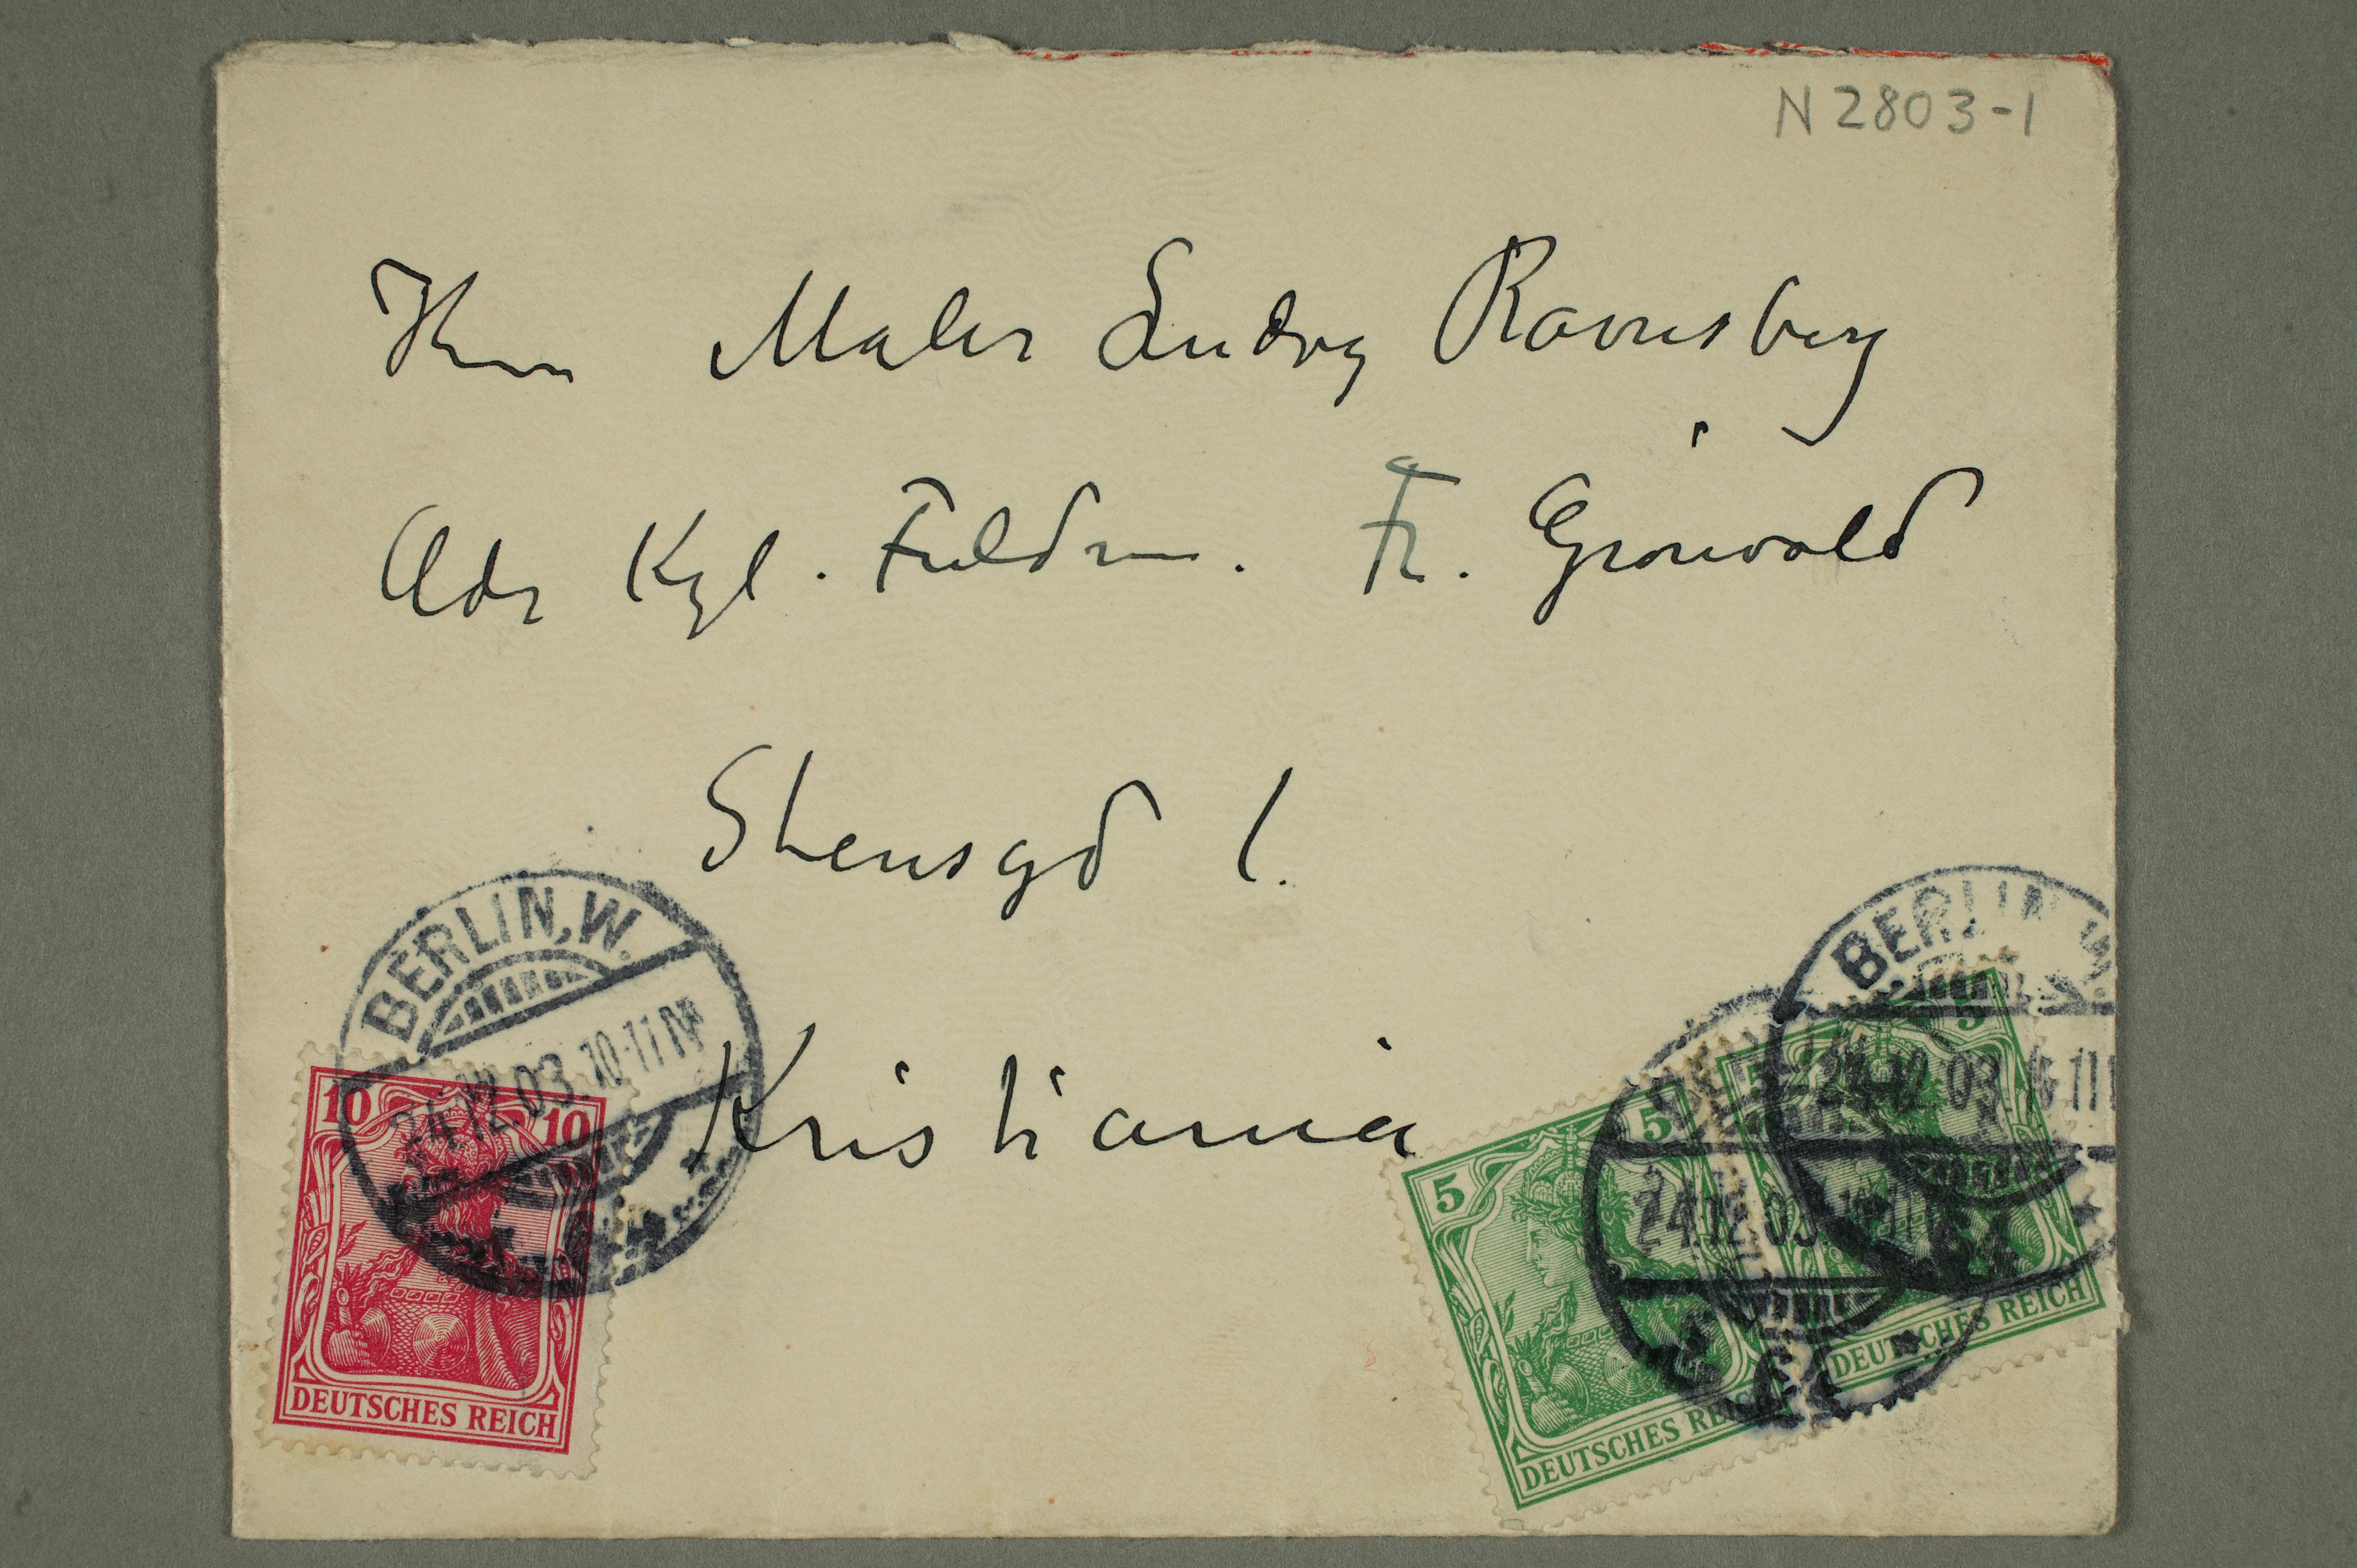 N 2803-1
Hrrn Maler Ludvig Ravensberg
Adr Kgl. Fuldm. Fr. Grönvold
Stensgd 1.
Kristiania
BERLIN, W.
24.12.03. 10-11 N
64
10 10
DEUTSCHES REICH
BERLIN W.
24.12.03. 10-11
64
24.12.03. 10-11
64
5 5
DEUTSCHES REICH
5 5
DEUTSCHES REICH